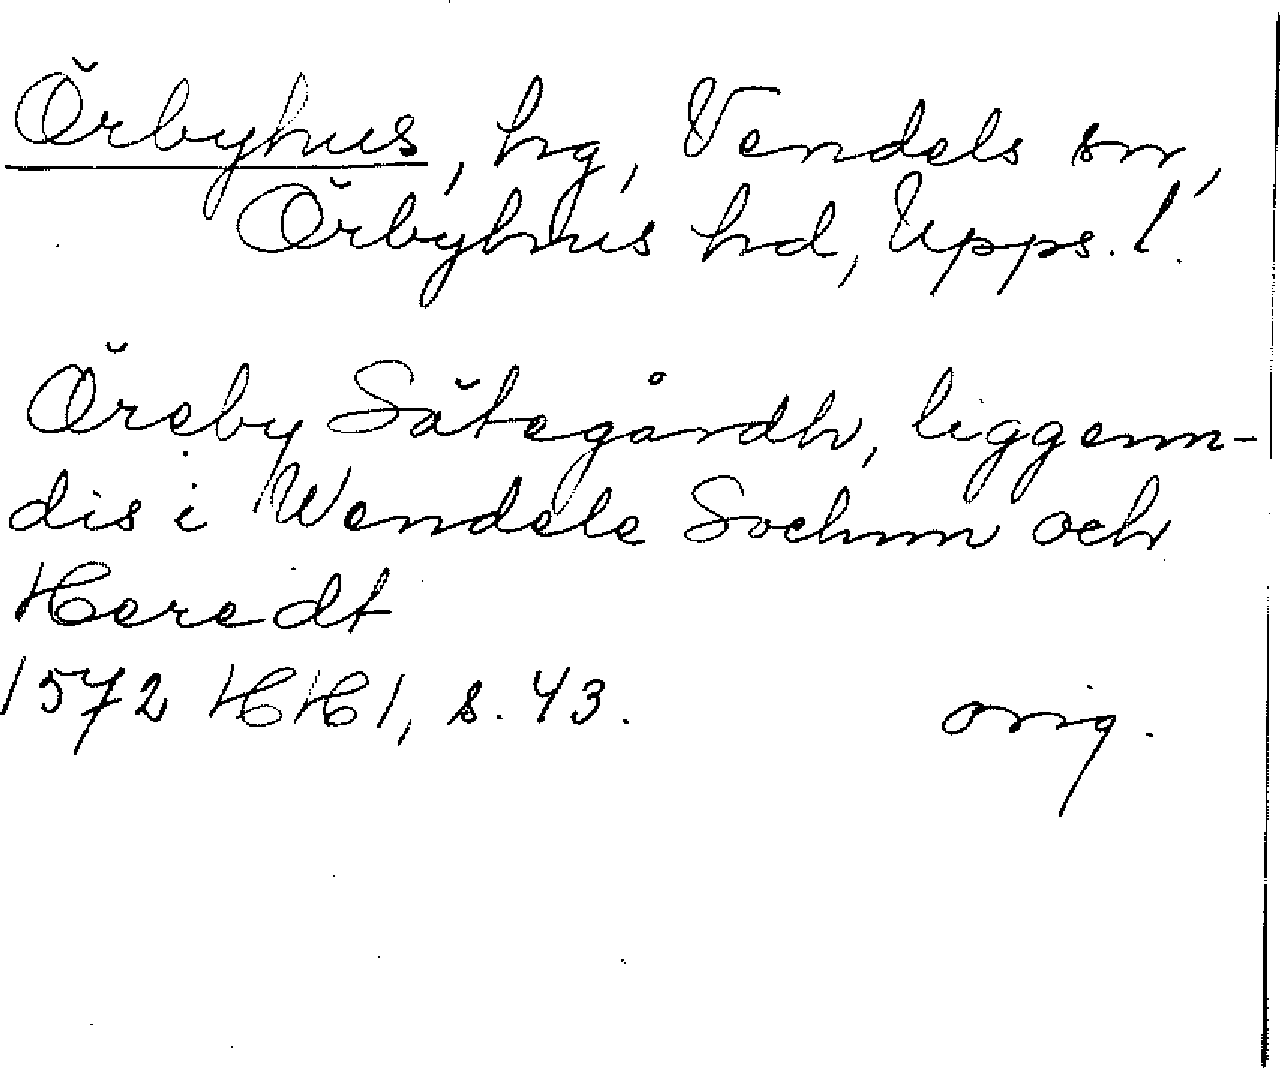 Örbyhus, hg, Vendels sn,
Örbyhus hd, Upps. l.
Öreby Sätegårdh, liggenn-
dis i Wendele Sochnn och
Heredt
1572 HH 1, s. 43.
orig.